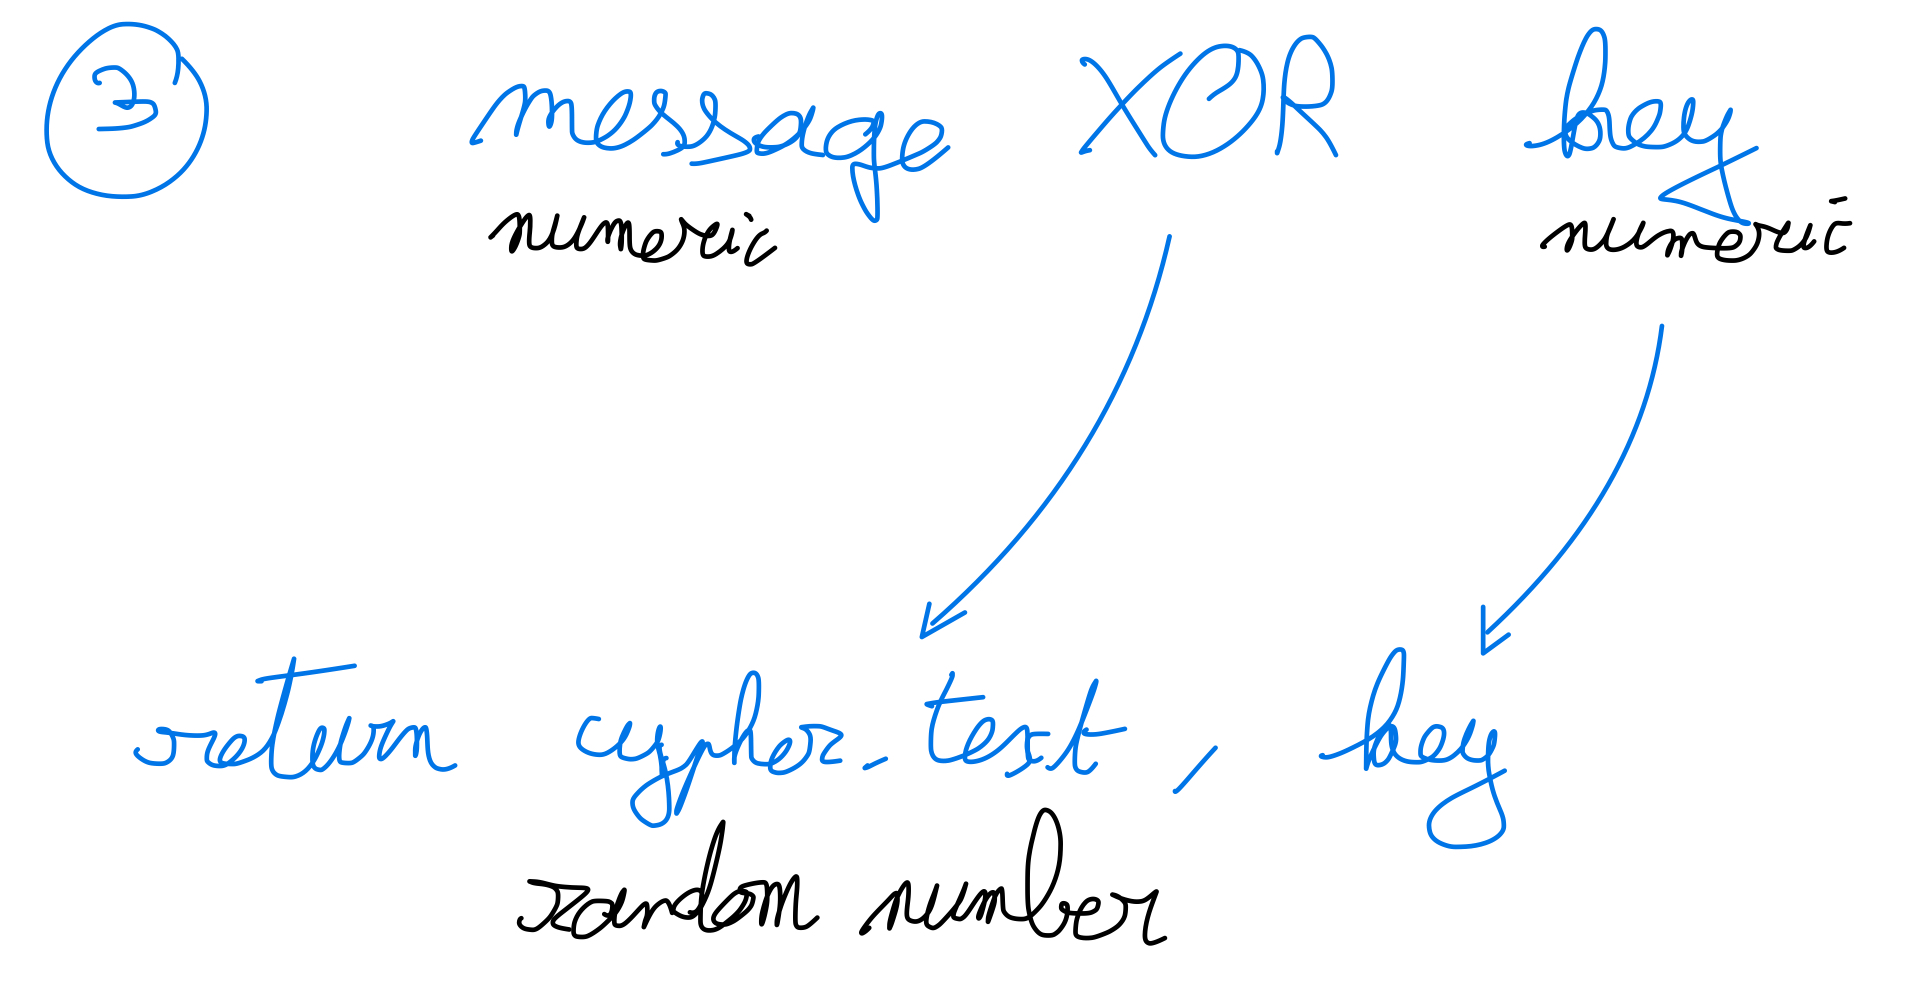 3 message XOR key
numeric numeric
return cypher-text, key
random number